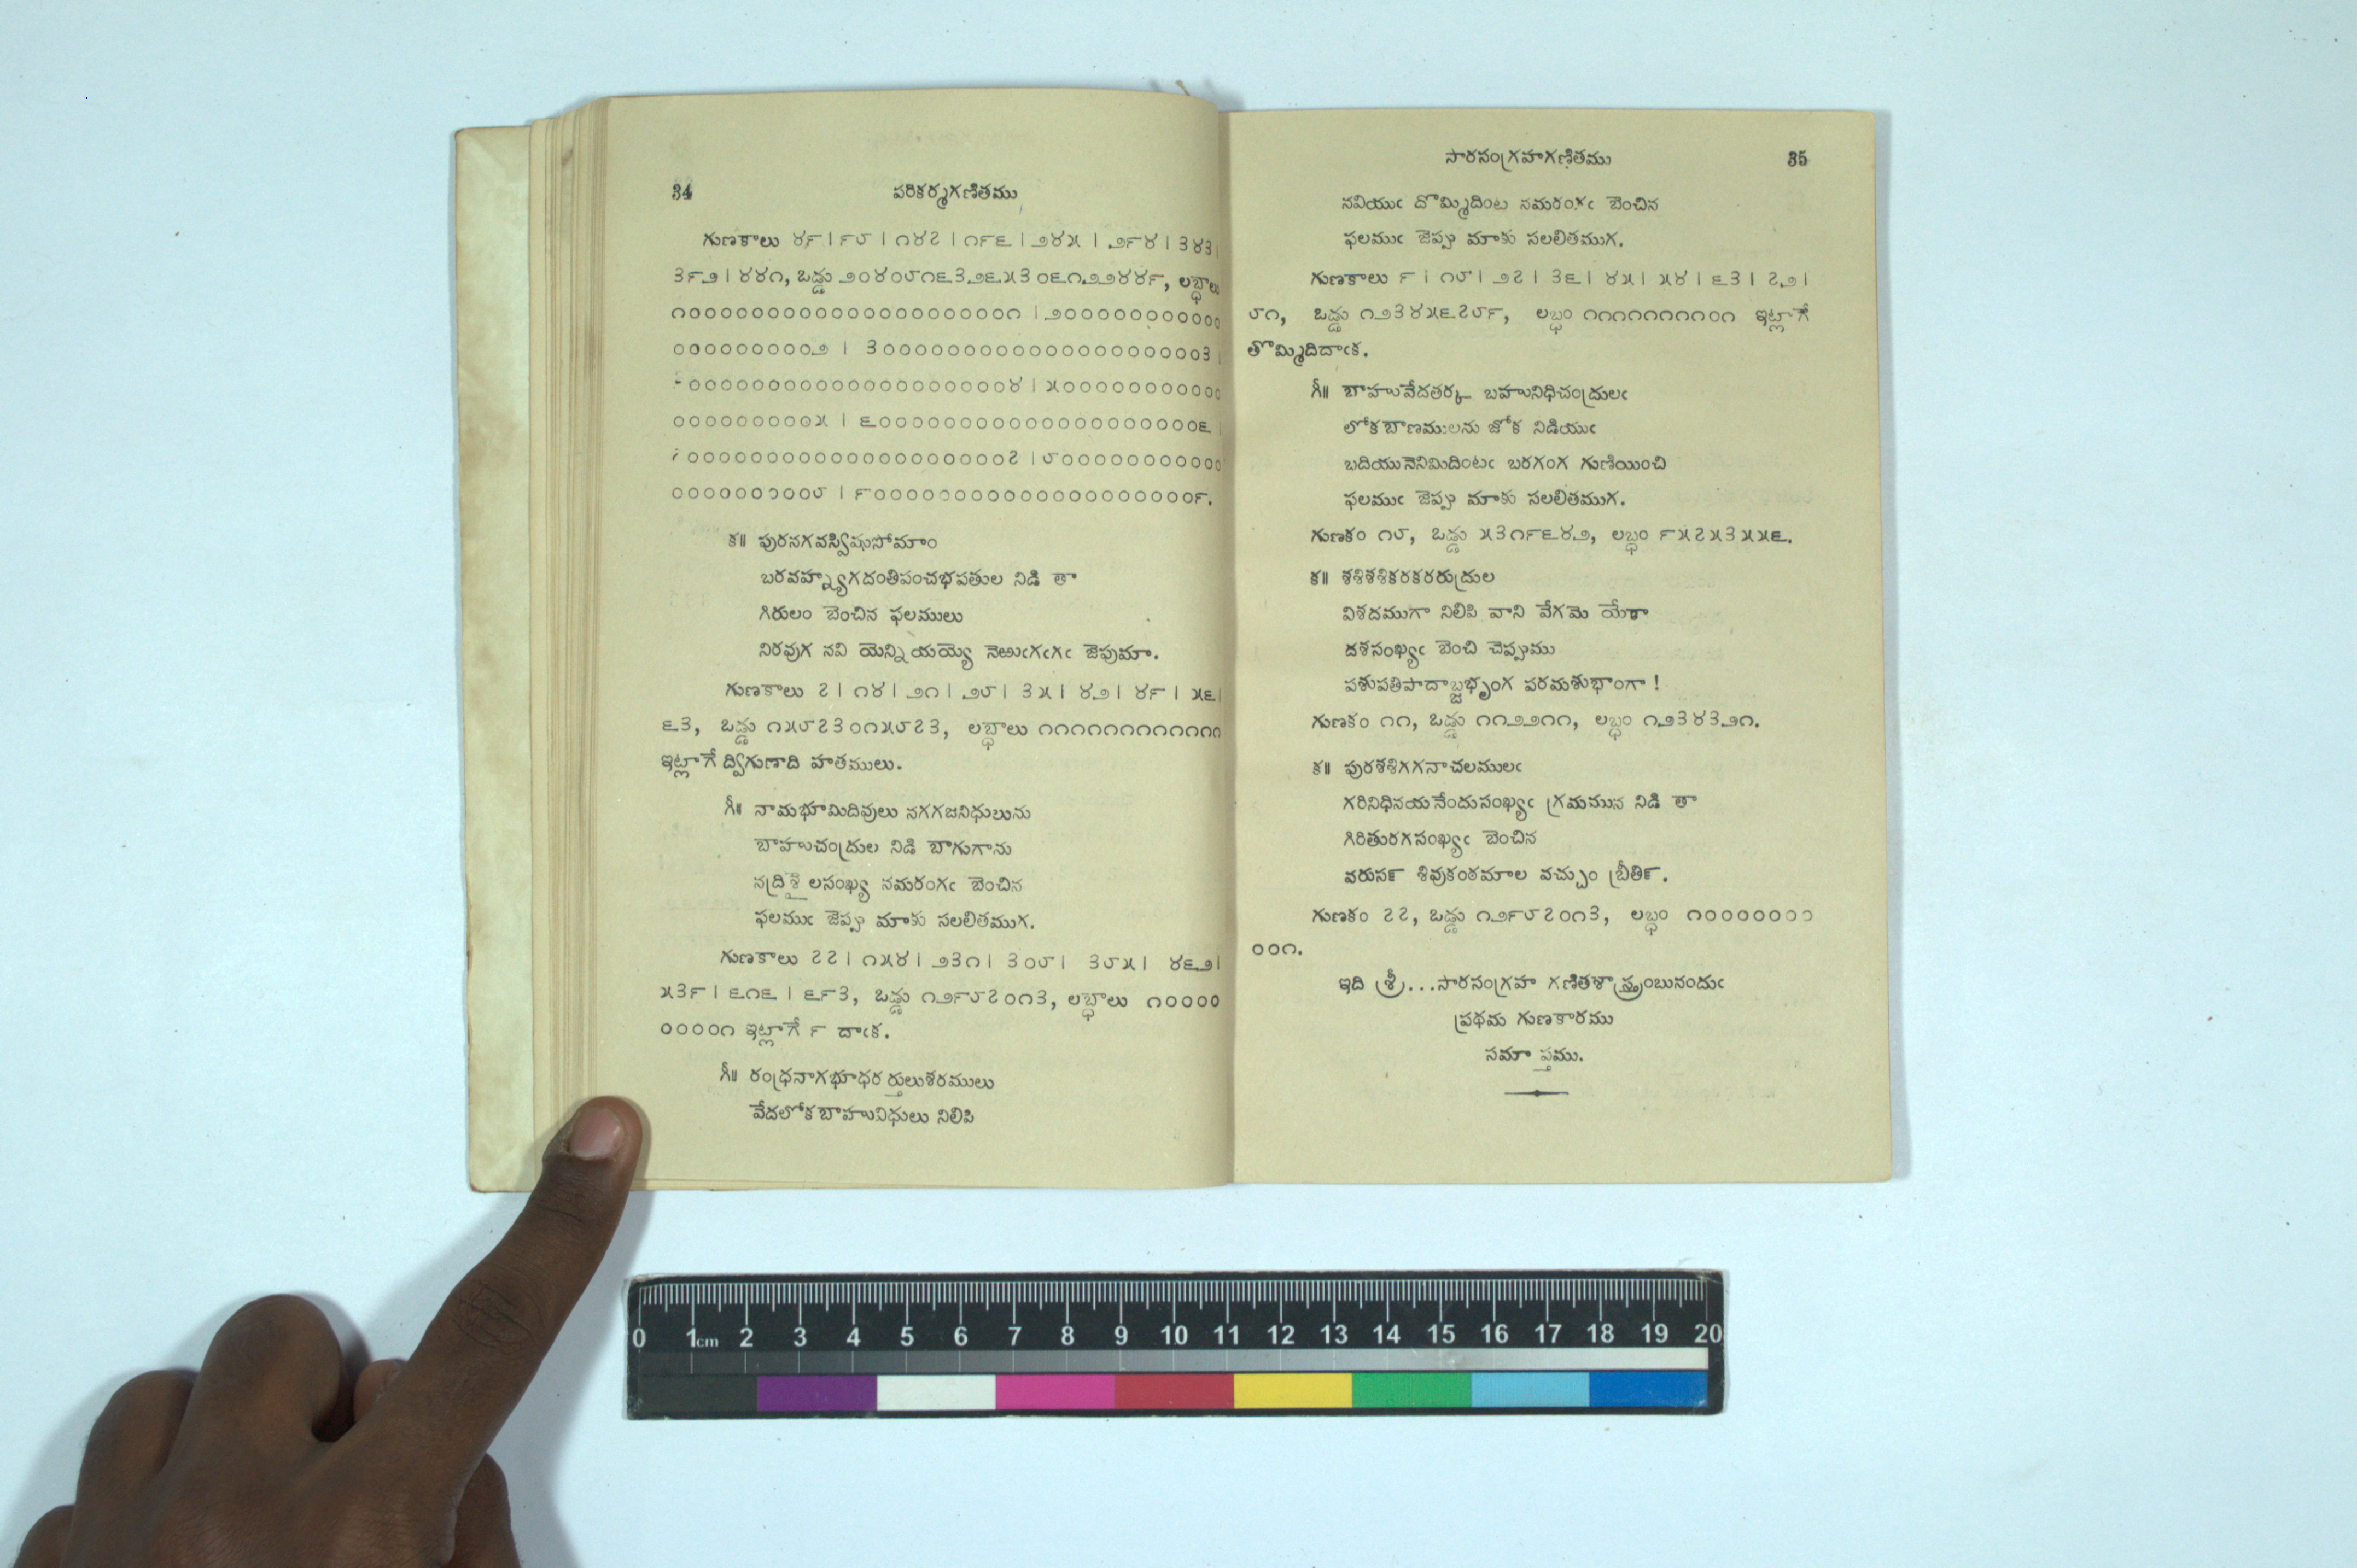 34 పరికర్మగణితము
గుణకాలు ౪౯ | ౯౮ | ౧౪౭ | ౧౯౬ | ౨౪౫ | ౨౯౪ | ౩౪౩ |
౩౯౨ | ౪౪౧, ఒడ్డు ౨౦౪౦౮౧౬౩౨౬౫౩౦౬౧౨౨౪౪౯, లబ్ధాలు
౧౦౦౦౦౦౦౦౦౦౦౦౦౦౦౦౦౦౦౦౦౧ | ౨౦౦౦౦౦౦౦౦౦౦౦
౦౦౦౦౦౦౦౦౦౨ | ౩౦౦౦౦౦౦౦౦౦౦౦౦౦౦౦౦౦౦౦౦౩ |
౦౦౦౦౦౦౦౦౦౦౦౦౦౦౦౦౦౦౦౦౪ | ౫౦౦౦౦౦౦౦౦౦౦౦
౦౦౦౦౦౦౦౦౦౫ | ౬౦౦౦౦౦౦౦౦౦౦౦౦౦౦౦౦౦౦౦౦౬ |
౦౦౦౦౦౦౦౦౦౦౦౦౦౦౦౦౦౦౦౦౭ | ౮౦౦౦౦౦౦౦౦౦౦౦
౦౦౦౦౦౦౦౦౦౦౮ | ౯౦౦౦౦౦౦౦౦౦౦౦౦౦౦౦౦౦౦౦౦౯.
క॥ పురనగవస్విషుసోమాం
బరవహ్న్యగదంతిపంచభపతుల నిడి తా
గిరులం బెంచిన ఫలములు
నిరవుగ నవి యెన్నియయ్యె నెఱుఁగఁగఁ జెపుమా.
గుణకాలు ౭ | ౧౪ | ౨౧ | ౨౮ | ౩౫ | ౪౨ | ౪౯ | ౫౬ |
౬౩, ఒడ్డు ౧౫౮౭౩౦౧౫౮౭౩, లబ్ధాలు ౧౧౧౧౧౧౧౧౧౧౧౧
ఇట్లాగే ద్విగుణాది హతములు.
గీ॥ నామభూమిదివులు నగగజనిధులును
బాహుచంద్రుల నిడి బాగుగాను
నద్రిశైలసంఖ్య నమరంగఁ బెంచిన
ఫలముఁ జెప్పు మాకు సలలితముగ.
గుణకాలు ౭౭ | ౧౫౪ | ౨౩౧ | ౩౦౮ | ౩౮౫ | ౪౬౨ |
౫౩౯ | ౬౧౬ | ౬౯౩, ఒడ్డు ౧౨౯౮౭౦౧౩, లబ్ధాలు ౧౦౦౦౦
౦౦౦౦౧ ఇట్లాగే ౯ దాఁక.
గీ॥ రంధ్రనాగభూధర ర్తులుశరములు
వేదలోకబాహువిధులు నిలిపి
సారసంగ్రహగణితము 35
నవియుఁ దొమ్మిదింట నమరంగఁ బెంచిన
ఫలముఁ జెప్పు మాకు సలలితముగ.
గుణకాలు ౯ | ౧౮ | ౨౭ | ౩౬ | ౪౫ | ౫౪ | ౬౩ | ౭౨ |
౮౧, ఒడ్డు ౧౨౩౪౫౬౭౮౯, లబ్ధం ౧౧౧౧౧౧౧౧౧౦౧ ఇట్లాగే
తొమ్మిదిదాఁక.
గీ॥ బాహువేదతర్క బహునిధిచంద్రులఁ
లోకబాణములను జోక నిడియుఁ
బదియునెనిమిదింటఁ బరగంగ గుణియించి
ఫలముఁ జెప్పు మాకు సలలితముగ.
గుణకం ౧౮, ఒడ్డు ౫౩౧౯౬౪౨, లబ్ధం ౯౫౭౫౩౫౫౬.
క॥ శశిశశికరకరరుద్రుల
విశదముగా నిలిపి వాని వేగమె యేకా
దశసంఖ్యఁ బెంచి చెప్పుము
పశుపతిపాదాబ్జభృంగ పరమశుభాంగా !
గుణకం ౧౧, ఒడ్డు ౧౧౨౨౧౧, లబ్ధం ౧౨౩౪౩౨౧.
క॥ పురశశిగగనాచలములఁ
గరినిధినయనేందుసంఖ్యఁ గ్రమమున నిడి తా
గిరితురగసంఖ్యఁ బెంచిన
వరుసన్ శివుకంఠమాల వచ్చుం బ్రీతిన్.
గుణకం ౭౭, ఒడ్డు ౧౨౯౮౭౦౧౩, లబ్ధం ౧౦౦౦౦౦౦౦
౦౦౧.
ఇది శ్రీ...సారసంగ్రహ గణితశాస్త్రంబునందుఁ
బ్రథమ గుణకారము
సమాప్తము.
0 1cm 2 3 4 5 6 7 8 9 10 11 12 13 14 15 16 17 18 19 20